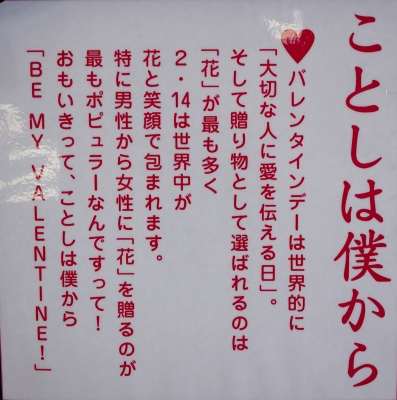 ことしは僕から
バレンタインデーは世界的に
「大切な人に愛を伝える日」。
そして贈り物として選ばれるのは
「花」が最も多く
2・14は世界中が
花と笑顔で包まれます。
特に男性から女性に「花」を贈るのが
最もポピュラーなんですって！
おもいきって、ことしは僕から
「BE MY VALENTINE!」